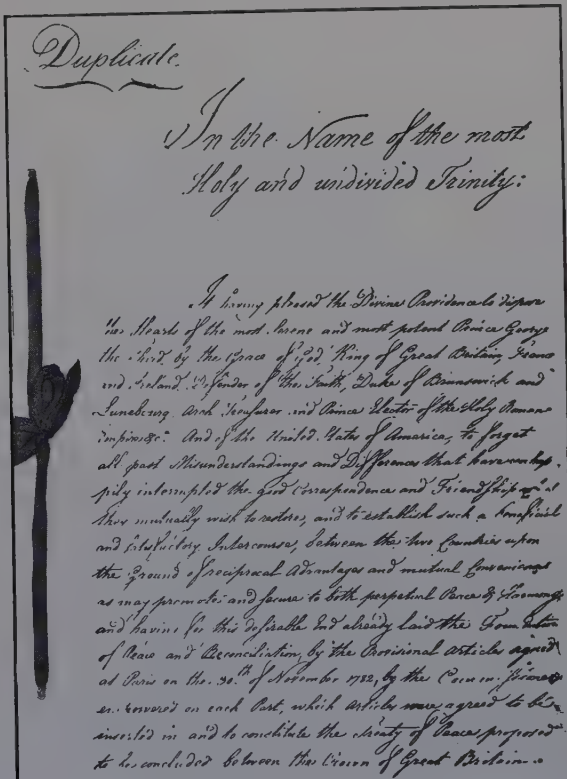 Duplicate.
In the Name of the most
Holy and undivided Trinity:
It having pleased the Divine Providence to dispose
the Hearts of the most Serene and most potent Prince George
the third, by the Grace of God, King of Great Britain, France
and Ireland, Defender of the Faith, Duke of Brunswick and
Lunebourg, Arch Treasurer and Prince Elector of the Holy Roman
Empire &c.a And of the United States of America, to forget
all past Misunderstandings and Differences that have unhap-
pily interrupted the good Correspondence and Friendship which
they mutually wish to restore; and to establish such a beneficial
and satisfactory Intercourse, between the two Countries upon
the Ground of reciprocal Advantages and mutual Convenience
as may promote and secure to both perpetual Peace & Harmony,
and having for this desirable End already laid the Foundation
of Peace and Reconciliation, by the Provisional Articles signed
at Paris on the 30.th of November 1782, by the Commissioners
empowered on each Part, which Articles were agreed to be
inserted in and to constitute the Treaty of Peace proposed
to be concluded between the Crown of Great Britain